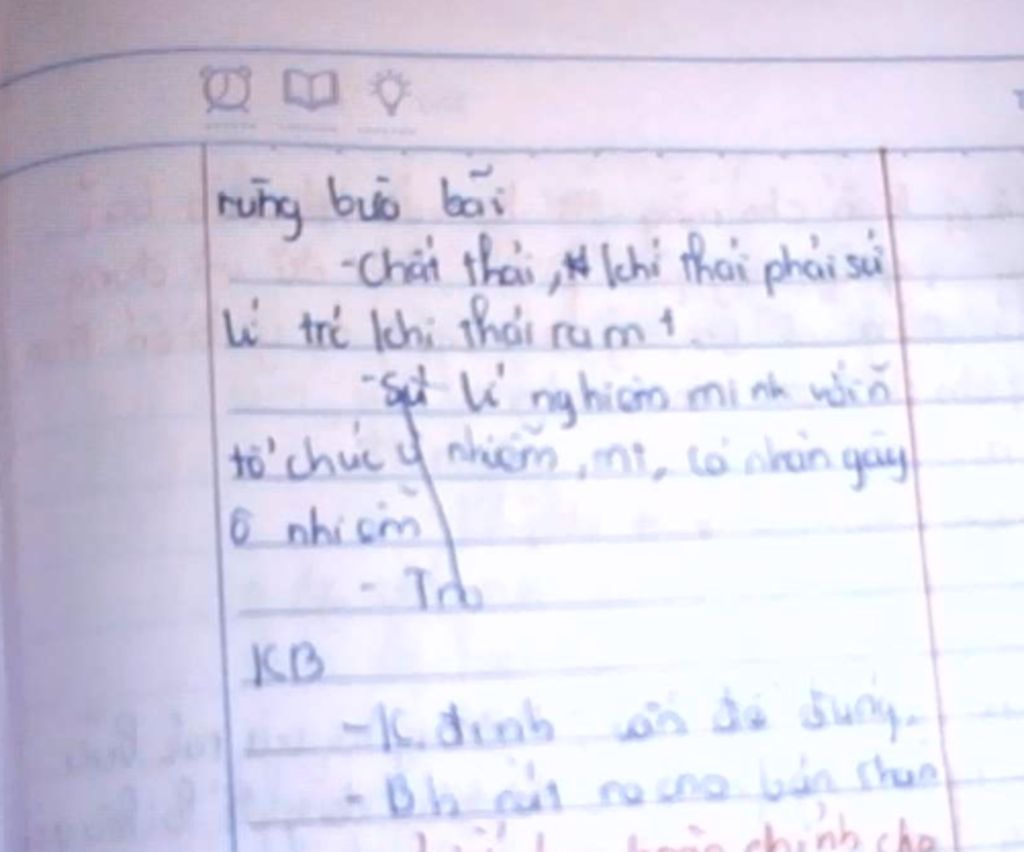 rừng bừa bãi
- Chất thải, khí thải phải sử
lí trc khi thải ra mt
- Sử lí nghiêm minh với n~
tổ chức ý nhiễm, mt, cá nhân gây
ô nhiễm
- Tro
KB
- K. định vấn đề đúng.
- Bh rút ra cho bản thân
hoàn chỉnh cho